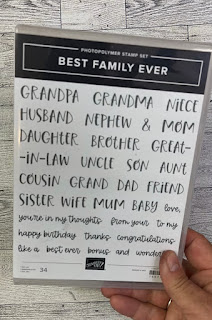 PHOTOPOLYMER STAMP SET
BEST FAMILY EVER
GRANDPA GRANDMA NIECE
HUSBAND NEPHEW & MOM
DAUGHTER BROTHER GREAT-
-IN-LAW UNCLE SON AUNT
COUSIN GRAND DAD FRIEND
SISTER WIFE MUM BABY love,
you're in my thoughts from your to my
happy birthday thanks congratulations
like a best ever bonus and wonderful
34